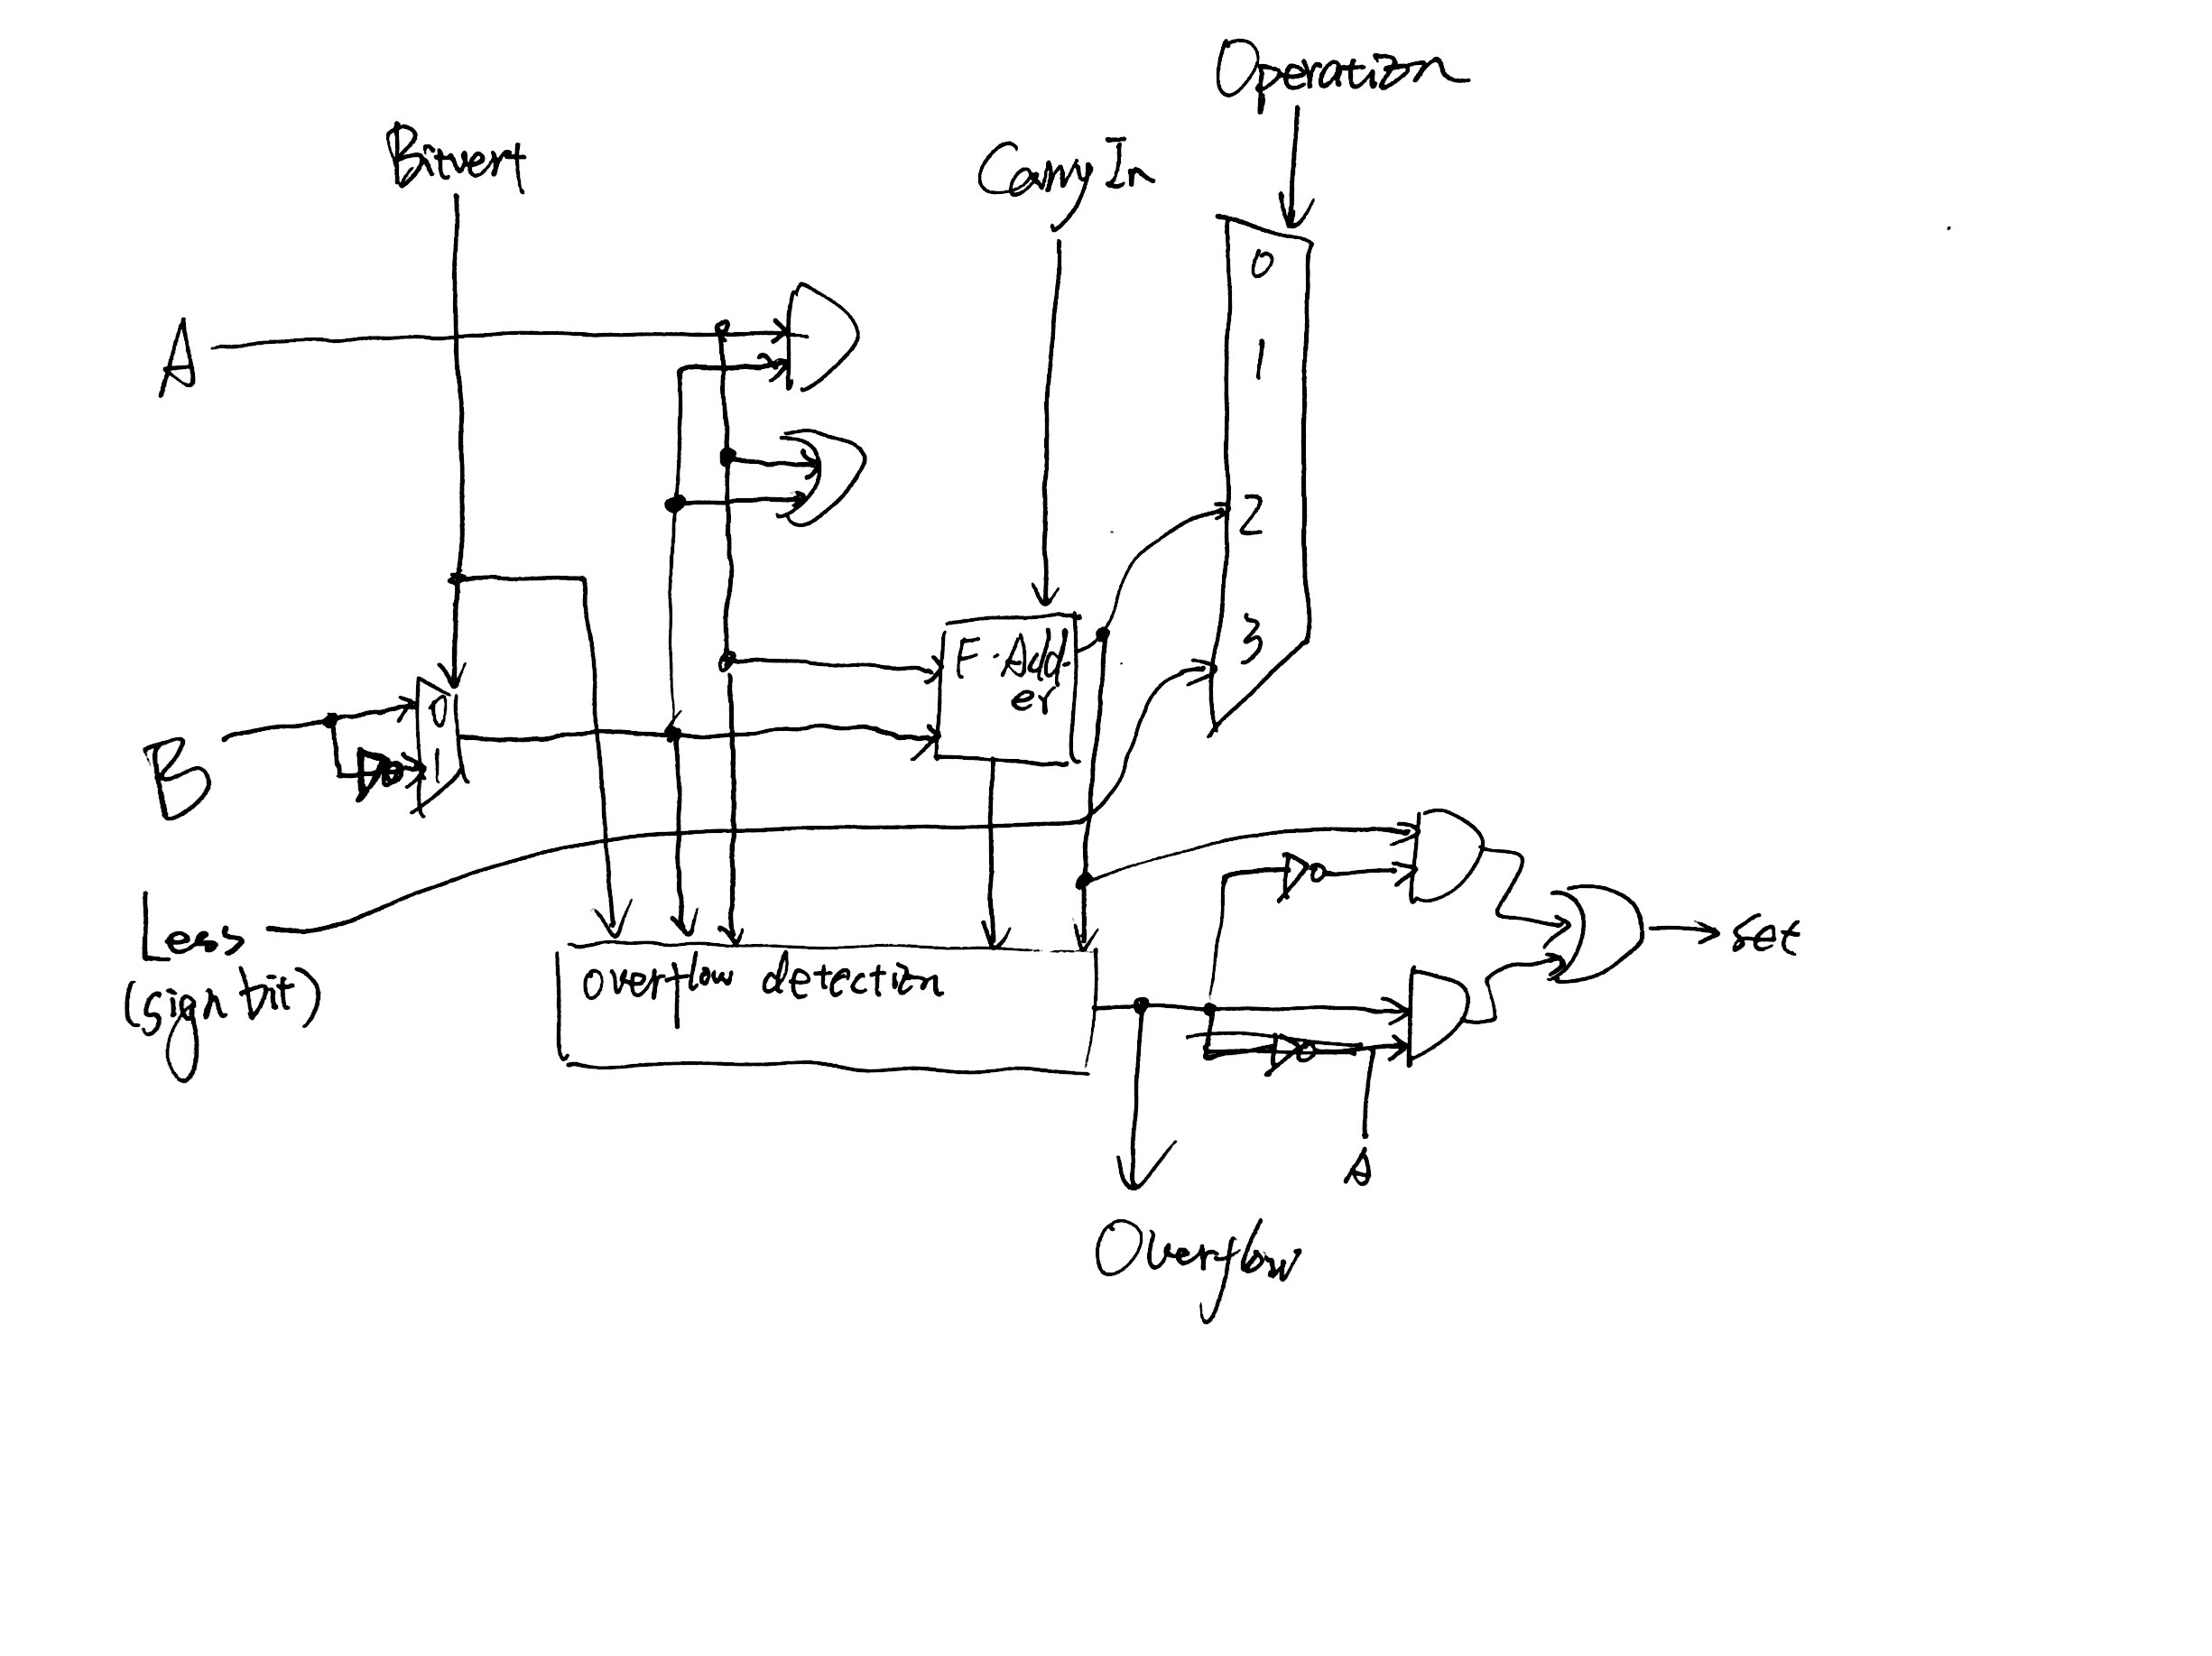 Operation
Binvert
Carry In
0
1
A
2
3
F-Add
er
B
0
1
Less
(sign bit)
overflow detection
set
A
Overflow